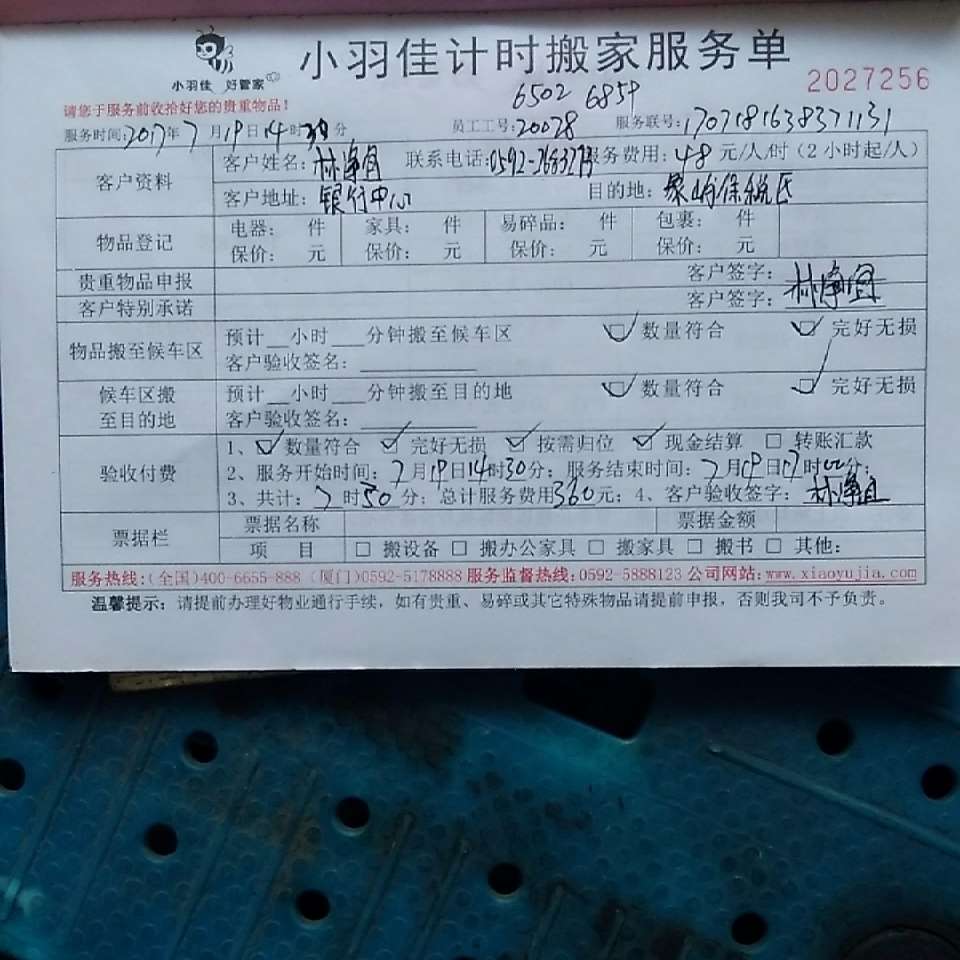 小羽佳 好管家
小羽佳计时搬家服务单
2027256
6502 6859
请您于服务前收拾好您的贵重物品！
服务时间:2017年7月19日14时30分 员工工号:20078 服务联号:1707181638371131
客户资料
客户姓名: 联系电话: 服务费用:48元/人/时（2小时起/人）
客户地址:银行中心 目的地:象屿保税区
物品登记
电器: 件 家具: 件 易碎品: 件 包裹: 件
保价: 元 保价: 元 保价: 元 保价: 元
贵重物品申报 客户签字:
客户特别承诺 客户签字:
物品搬至候车区
预计__小时___分钟搬至候车区 数量符合 完好无损
客户验收签名:
候车区搬至目的地
预计__小时___分钟搬至目的地 数量符合 完好无损
客户验收签名:
验收付费
1、数量符合 完好无损 按需归位 现金结算 □ 转账汇款
2、服务开始时间:7月19日14时30分;服务结束时间:7月19日17时00分;
3、共计:2时50分;总计服务费用360元;4、客户验收签字:
票据栏
票据名称 票据金额
项 目 □ 搬设备 □ 搬办公家具 □ 搬家具 □ 搬书 □ 其他:
服务热线:(全国)400-6655-888 (厦门)0592-5178888 服务监督热线:0592-5888123 公司网站:www.xiaoyujia.com
温馨提示：请提前办理好物业通行手续，如有贵重、易碎或其它特殊物品请提前申报，否则我司不予负责。